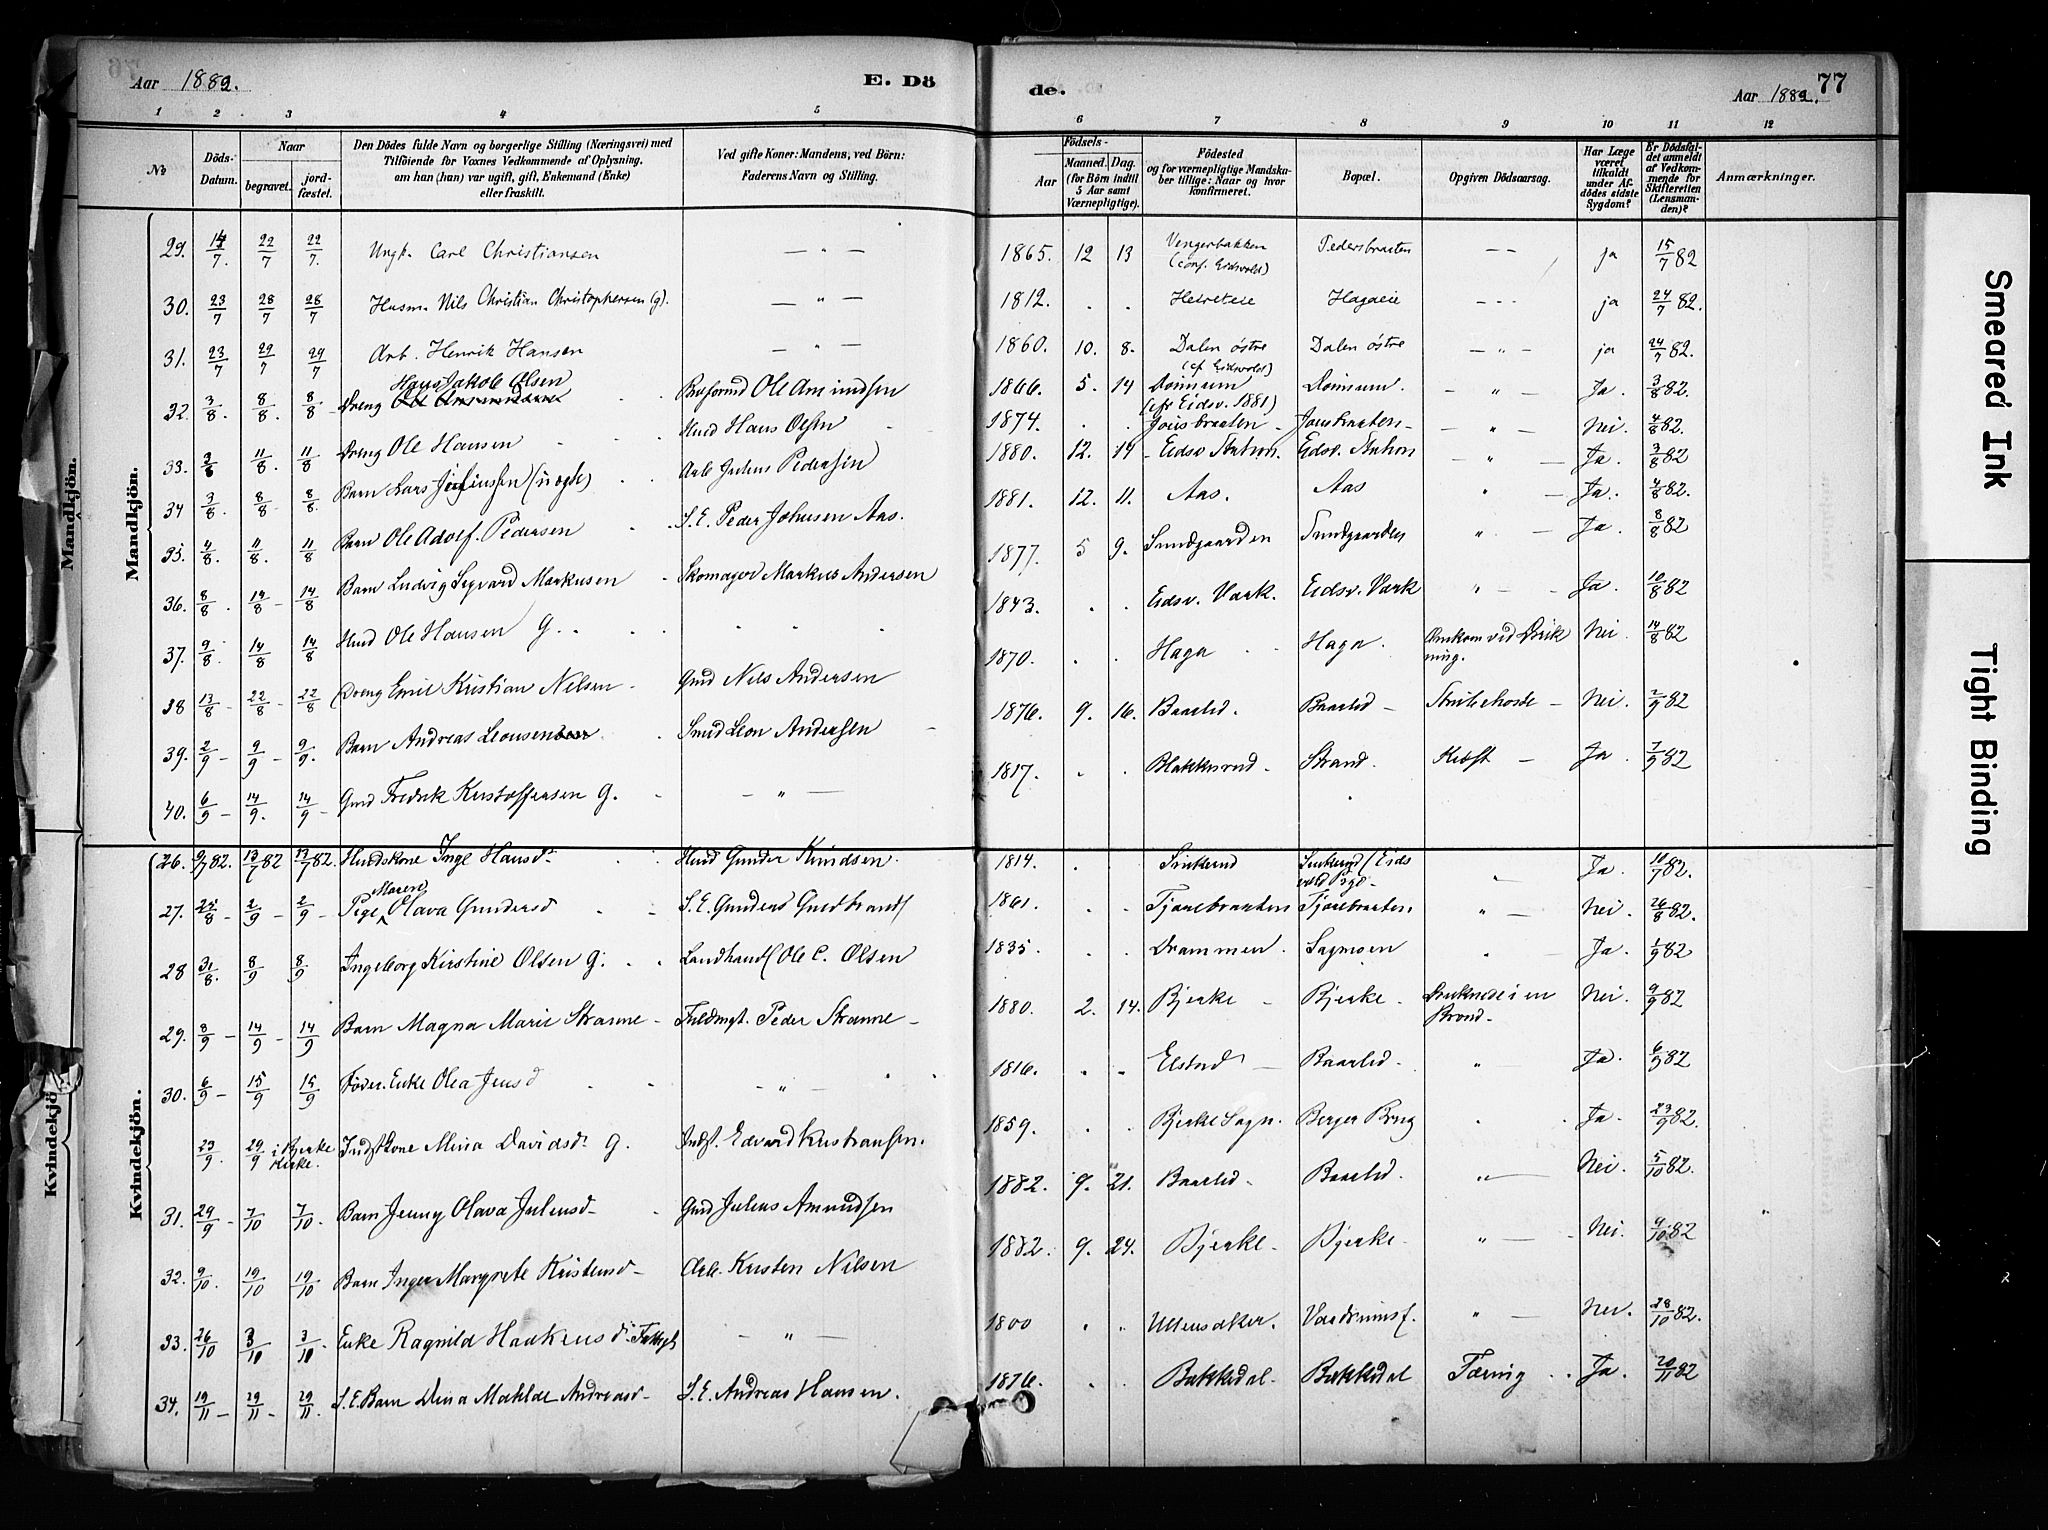 Aar 1882. E. Dö
de. Aar 1882. 77
1 2 3 4 5
6 7 8 9 10 11 12
No
Döds-Datum.
Naar
begravet.
jord-fæstet.
Den Dödes fulde Navn og borgerlige Stilling (Næringsvei) med
Tilföiende for Voxnes Vedkommende af Oplysning,
om han (hun) var ugift, gift, Enkemand (Enke)
eller fraskilt.
Ved gifte Koner: Mandens, ved Börn:
Faderens Navn og Stilling.
Födsels-
Aar
Maaned. Dag.
(for Börn indtil
5 Aar samt
Værnepligtige).
Födested
og for værnepligtige Mandska-
ber tillige: Naar og hvor
konfirmeret.
Bopæl.
Opgiven Dödsaarsag.
Har Læge
været
tilkaldt
under Af-
dödes sidste
Sygdom?
Er Dödsfal-
det anmeldt
af Vedkom-
mende for
Skifteretten
(Lensman-
den)?
Anmærkninger.
Mandkjön.
Mandkjön.
29. 14/7. 22/7 22/7. Ungk. Carl Christiansen — " — 1865. 12 13 Vengerbakken (conf. Eidsvold) Pedersbraaten — — ja 15/7 82
30. 23/7 28/7 28/7 Husm. Nils Christian Christophersen (g). — " — 1812. . . Helveteie Hagaeie --- ja 24/7 82.
31. 23/7 29/7 29/7 Arb. Henrik Hansen — " — 1860. 10. 8. Dalen østre (cf Eidsvold) Dalen østre — " — ja 24/7 82.
32. 3/8. 8/8. 8/8 - Dreng Hans Jakob Olsen Ole Amundsen 1866. 5. 14 Dönnum (cfr Eidsv. 1881) Dönnum. — " Ja. 3/8 82.
33. 11/8. 11/8 Dreng Ole Hansen Husd Hans Olsen 1874. . . — " — Nei. 4/8 82.
34 3/8. 8/8. 8/8. Barn Lars (uægte) Arb Julius Pedersen 1880. 12. 14 Eidsv Station. Eidsv. Station — " Ja. 3/8 82
35. 4/8 11/8. 11/8 Barn Ole Adolf Pedersen S. E. Peder Johnsen Aas. 1881. 12. 11. Aas. Aas " — Ja. 4/8 82.
36. 8/8. 14/8 - 14/8 Barn Ludvig Sigvard Markusen Skomager Markus Andersen 1877. 5 9. Sundgaarden Sundgaarden " Ja. 8/8 82
37. 9/8. 14/8 14/8 Husd Ole Hansen G. 1843. . . Eidsv. Værk. Eidsv. Værk " — Ja. 10/8 82
38 13/8 - 22/8 - 22/8 Dreng Emil Kristian Nilsen - Gmd Nils Andersen 1870. . . Haga Haga. Omkom ved Drukning. Nei. 14/8 82
39. 2/9 - 9/9 - 9/9. Barn Andreas Leonsen Smed Leon Andersen 1876. 9. 16. Baarlid. Baarlid — Strubehoste — Nei. 2/9 82
40. 6/9 - 14/9. 14/9 - Gmd Fredrik Kristoffersen G. — " — 1817. . . Blakkisrud. Strand. Kræft — Ja. 7/9 82
Kvindekjö
Kvindekjön.
26. 9/7 82. 13/7 82 13/7 82. Husdskone Inge Hansd. Husd Gunder Knudsen. 1814. . . Ja. 10/7 82.
27. 25/8 - 2/9 - 2/9 - Pige Maren Olava Gundersd S. E. Gunders Gudbrands 1861. . . Tjærebraaten Tjærebraaten. " — Nei. 26/8 82.
28 31/8. 8/9 8/9 Ingeborg Kirstine Olsen G. Landhandl Ole C. Olsen 1835. . . Drammen. Sagmoen Ja. 1/9 82
29. 8/9 - 14/9 - 14/9 Barn Magna Marie Stranne - Fuldmgt. Peder Stranne - 1880. 2. 14. Bjerke — Bjerke. Druknede i en Brønd. Nei. 9/9 82
30. 6/9 - 15/9 15/9 Föder. Enke Olea Jensd — " — 1816. . . Elstad — Baarlid. " — Ja. 6/9 82
23/9. 29/9 i Bjerke Kirke. Indstkone Mina Davidsd. G. Indst. Edvard Kristiansen. 1859. . . Bjerke Sogn. Berger Brug Ja. 23/9 82.
31. 29/9 - 7/10 7/10 - Barn Jenny Olava Juliusd - Gmd Julius Amundsen 1882. 9. 21. Baarlid. Baarlid. " Nei. 5/10 82.
32. 9/10. 19/10 19/10 Barn Inger Margrete Kristensd - Arb. Kristen Nilsen 1882. 9. 24. Bjerke. Bjerke. " — Nei. 9/10 82
33. 26/10 3/10 3/10 - Enke Ragnild Haakensd. — " — 1800 . . Ullensaker. " — Nei. 28/10 82.
34. 19/11 - 29/11 - 29/11. S. E. Barn Dina Matilde Andreasd - S. E. Andreas Hansen. 1876. . . Bakkedal Bakkedal Tæring Ja. 20/11 82
Smeared Ink
Tight Binding